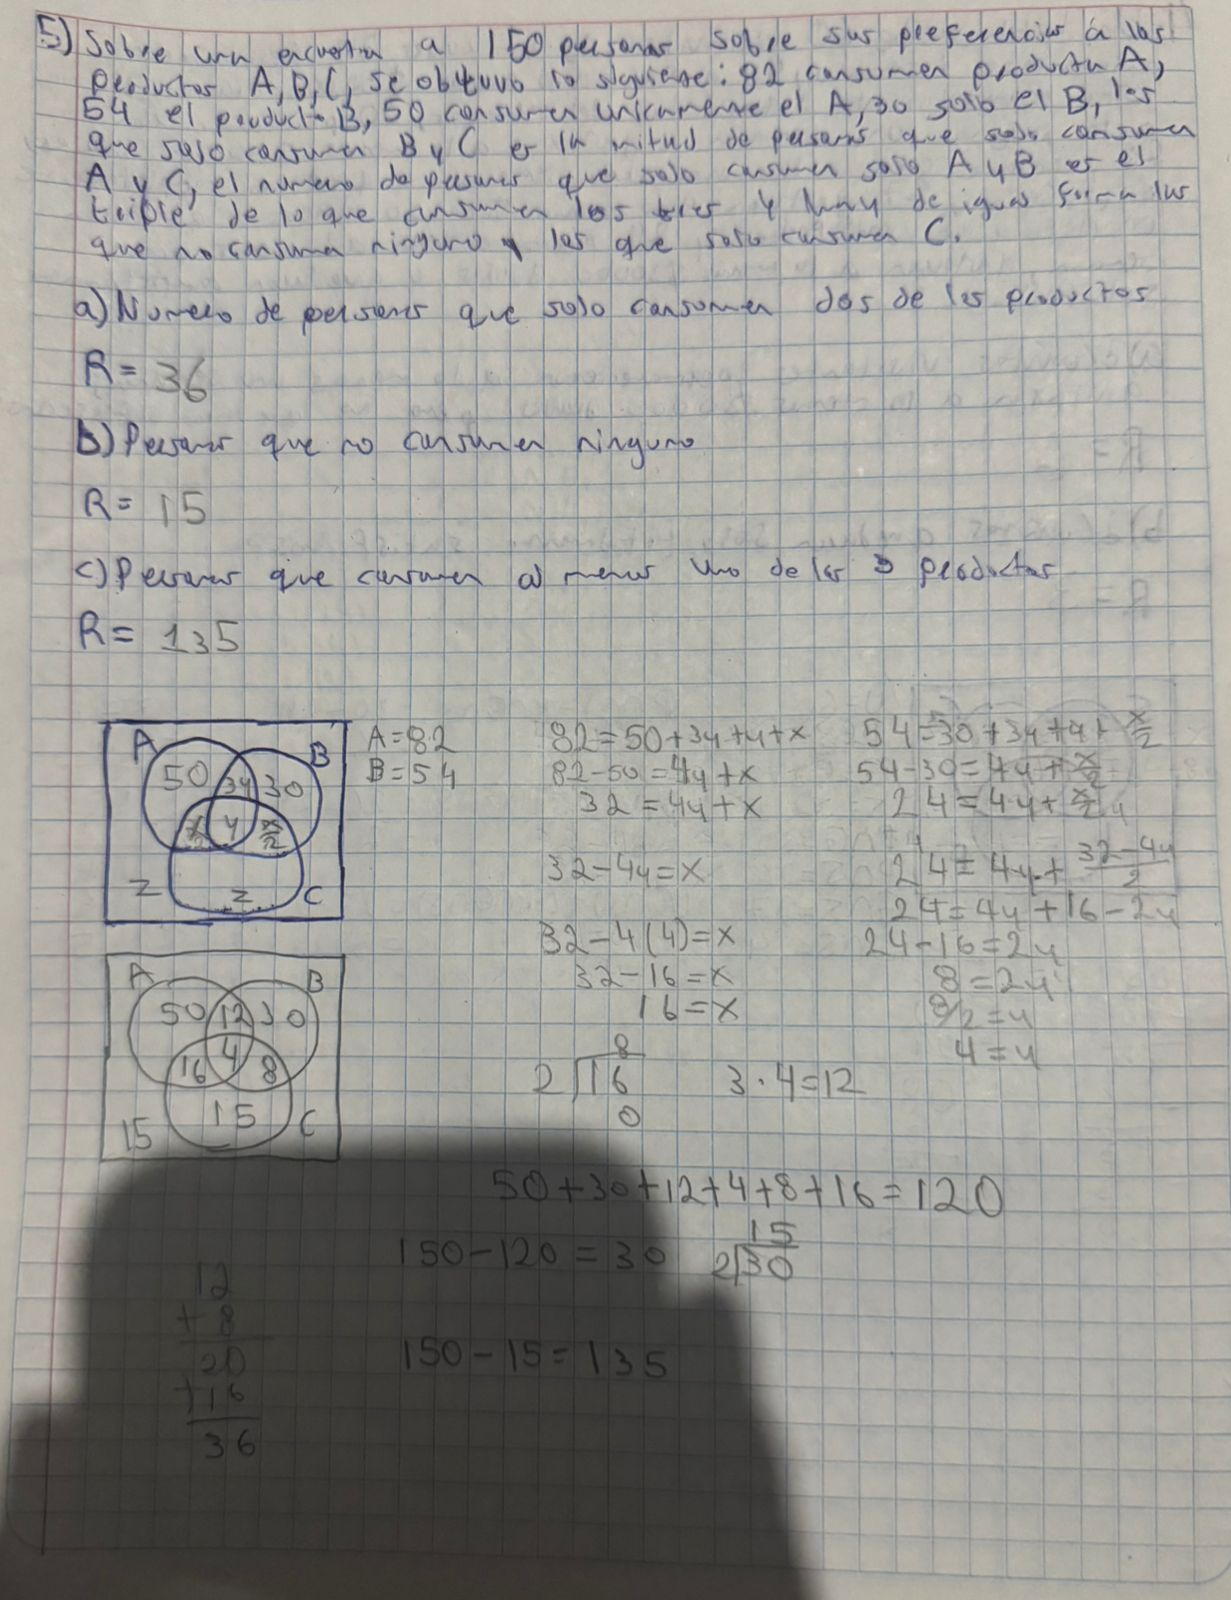 5) Sobre una encuesta a 150 personas sobre sus preferencias a los
productos A, B, C, se obtuvo lo siguiente: 82 consumen producto A,
54 el producto B, 50 consumen unicamente el A, 30 solo el B, los
que solo consumen B y C es la mitad de personas que solo consumen
A y C, el numero de personas que solo consumen solo A y B es el
triple de lo que consumen los tres y hay de igual forma los
que no consumen ninguno y los que solo consumen C.
a) Numero de personas que solo consumen dos de los productos
R = 36
b) Personas que no consumen ninguno
R = 15
c) Personas que consumen al menos uno de los 3 productos
R = 135
A B
50 3y 30
x/2 y x/2
z z C
A = 82
B = 54
82 = 50 + 3y + y + x
82 - 50 = 4y + x
32 = 4y + x
32 - 4y = x
32 - 4(4) = x
32 - 16 = x
16 = x
54 = 30 + 3y + y + x/2
54 - 30 = 4y + x/2
24 = 4y + x/2
24 = 4y + 32-4y/2
24 = 4y + 16 - 2y
24 - 16 = 2y
8 = 2y
8/2 = y
4 = y
A B
50 12 30
16 4 8
15 15 C
8
2 16
0
3 · 4 = 12
50 + 30 + 12 + 4 + 8 + 16 = 120
150 - 120 = 30
15
2 30
150 - 15 = 135
12
+ 8
20
+ 16
36